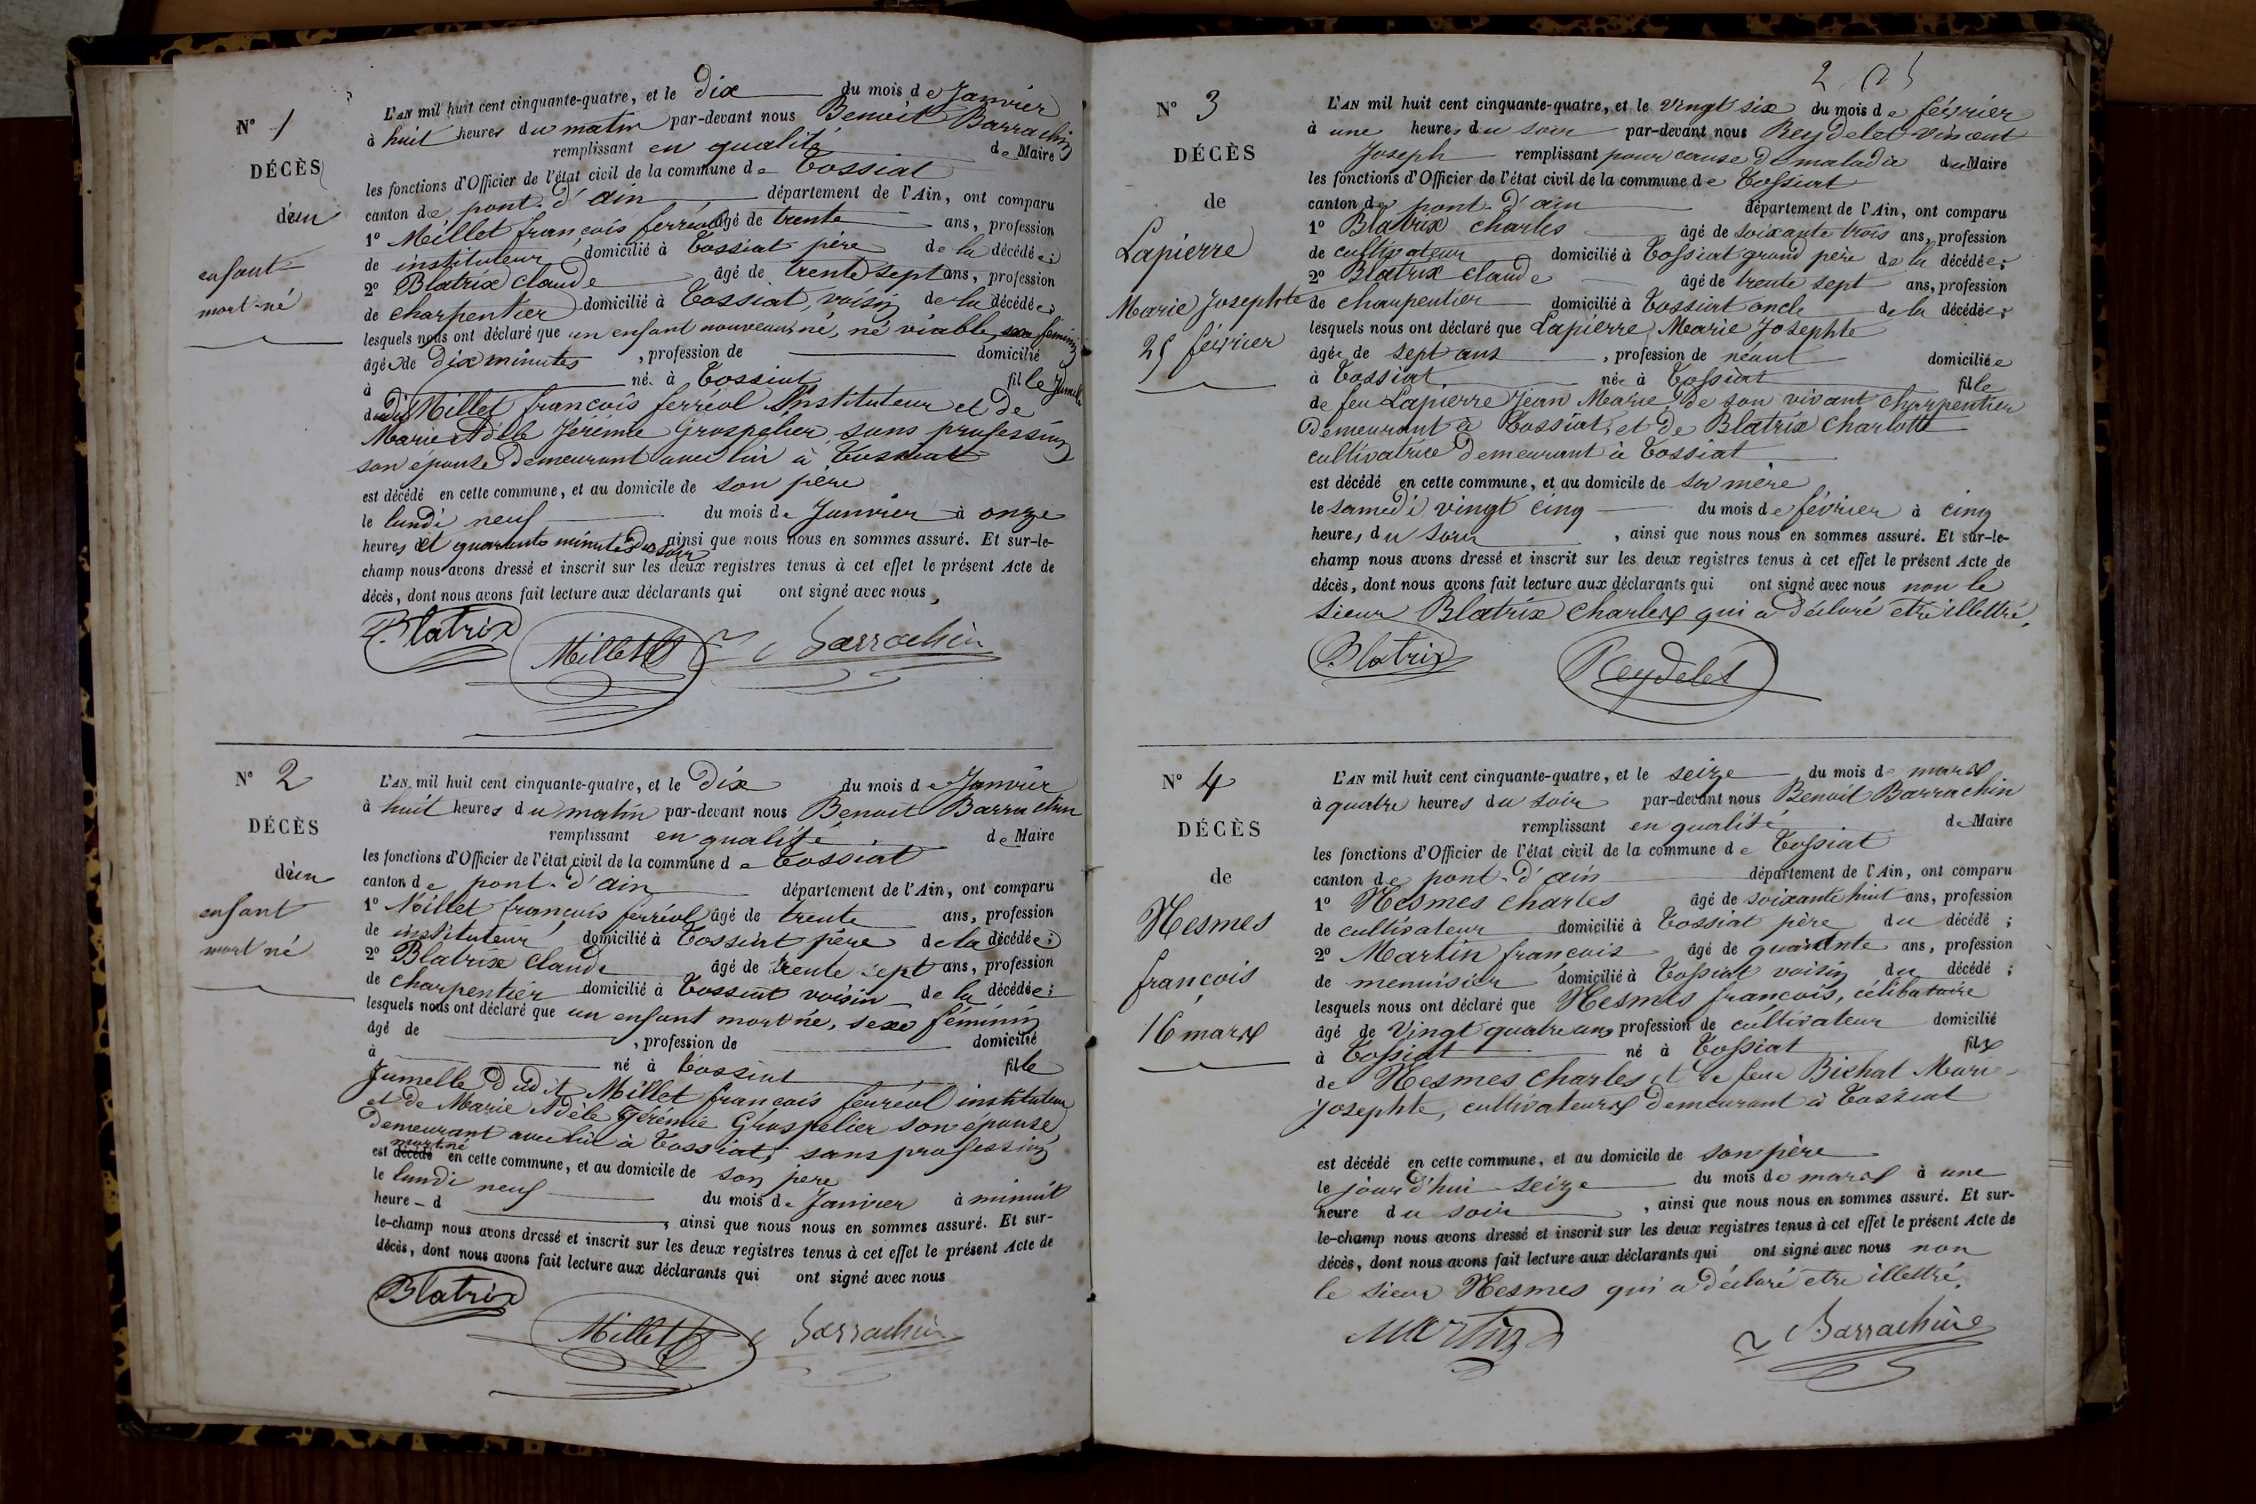 N° 1
DÉCÈS
d'un
enfant
mort-né
L'AN mil huit cent cinquante-quatre, et le dix du mois de Janvier
à huit heures du matin par-devant nous Benoit Barrachin
remplissant en qualité de Maire
les fonctions d'Officier de l'état civil de la commune de Tossiat
canton de pont-d'ain département de l'Ain, ont comparu
1° Millet françois ferréol âgé de trente ans, profession
de instituteur domicilié à Tossiat père de la décédée;
2° Blatrix claude âgé de trente sept ans, profession
de charpentier domicilié à Tossiat, voisin de la décédée;
lesquels nous ont déclaré que un enfant nouveau né, né viable, sexe féminin
âgé de dix minutes, profession de domicilié
à né à Tossiat fille Jumelle
dudit Millet françois ferréol Instituteur et de
Marie Adèle Jeremie Grospelier sans profession
son épouse demeurant avec lui à Tossiat
est décédé en cette commune, et au domicile de son père
le lundi neuf du mois de Janvier à onze
heures et quarante minutes du soir, ainsi que nous nous en sommes assuré. Et sur-le-
champ nous avons dressé et inscrit sur les deux registres tenus à cet effet le présent Acte de
décès, dont nous avons fait lecture aux déclarants qui ont signé avec nous,
Blatrix
Millet
Barrachin
N° 2
DÉCÈS
d'un
enfant
mort né
L'AN mil huit cent cinquante-quatre, et le dix du mois de Janvier
à huit heures du matin par-devant nous Benoit Barrachin
remplissant en qualité de Maire
les fonctions d'Officier de l'état civil de la commune de Tossiat
canton de pont-d'ain département de l'Ain, ont comparu
1° Millet françois ferréol âgé de trente ans, profession
de instituteur domicilié à Tossiat père de la décédée;
2° Blatrix claude âgé de trente sept ans, profession
de charpentier domicilié à Tossiat voisin de la décédée;
lesquels nous ont déclaré que un enfant mort né, sexe féminin
âgé de, profession de domicilié
à né à Tossiat fille
Jumelle dudit Millet françois ferréol instituteur
et de Marie Adèle Jérémie Grospelier son épouse
demeurant avec lui à Tossiat, sans profession
mort né
est décédé en cette commune, et au domicile de son père
le lundi neuf du mois de Janvier à minuit
heure d, ainsi que nous nous en sommes assuré. Et sur-
le-champ nous avons dressé et inscrit sur les deux registres tenus à cet effet le présent Acte de
décès, dont nous avons fait lecture aux déclarants qui ont signé avec nous
Blatrix
Millet
Barrachin
2
N° 3
DÉCÈS
de
Lapierre
Marie Josephte
25 février
L'AN mil huit cent cinquante-quatre, et le vingt six du mois de février
à une heure du soir par-devant nous Reydelet vincent
Joseph remplissant pour cause de maladie du Maire
les fonctions d'Officier de l'état civil de la commune de Tossiat
canton de pont-d'ain département de l'Ain, ont comparu
1° Blatrix charles âgé de soixante trois ans, profession
de cultivateur domicilié à Tossiat grand père de la décédée;
2° Blatrix claude âgé de trente sept ans, profession
de charpentier domicilié à Tossiat oncle de la décédée;
lesquels nous ont déclaré que Lapierre, Marie Josephte
âgée de sept ans, profession de néant domiciliée
à Tossiat née à Tossiat fille
de feu Lapierre Jean Marie, de son vivant charpentier
demeurant à Tossiat, et de Blatrix Charlotte
cultivatrice demeurant à Tossiat
est décédé en cette commune, et au domicile de sa mère
le samedi vingt cinq du mois de février à cinq
heures du soir, ainsi que nous nous en sommes assuré. Et sur-le-
champ nous avons dressé et inscrit sur les deux registres tenus à cet effet le présent Acte de
décès, dont nous avons fait lecture aux déclarants qui ont signé avec nous non le
sieur Blatrix Charles qui a déclaré etre illettré.
Blatrix
Reydelet
N° 4
DÉCÈS
de
Hesmes
françois
16 mars
L'AN mil huit cent cinquante-quatre, et le seize du mois de mars
à quatre heures du soir par-devant nous Benoit Barrachin
remplissant en qualité de Maire
les fonctions d'Officier de l'état civil de la commune de Tossiat
canton de pont-d'ain département de l'Ain, ont comparu
1° Hesmes Charles âgé de soixante huit ans, profession
de cultivateur domicilié à Tossiat père du décédé;
2° Martin françois âgé de quarante ans, profession
de menuisier domicilié à Tossiat voisin du décédé;
lesquels nous ont déclaré que Hesmes françois, célibataire
âgé de vingt quatre ans profession de cultivateur domicilié
à Tossiat né à Tossiat fils
de Hesmes Charles et de feue Bichat Marie
Josephte, cultivateurs demeurant à Tossiat
est décédé en cette commune, et au domicile de son père
le jourd'hui seize du mois de mars à une
heure du soir, ainsi que nous nous en sommes assuré. Et sur-
le-champ nous avons dressé et inscrit sur les deux registres tenus à cet effet le présent Acte de
décès, dont nous avons fait lecture aux déclarants qui ont signé avec nous non
le sieur Hesmes qui a déclaré etre illettré.
Martin
Barrachin